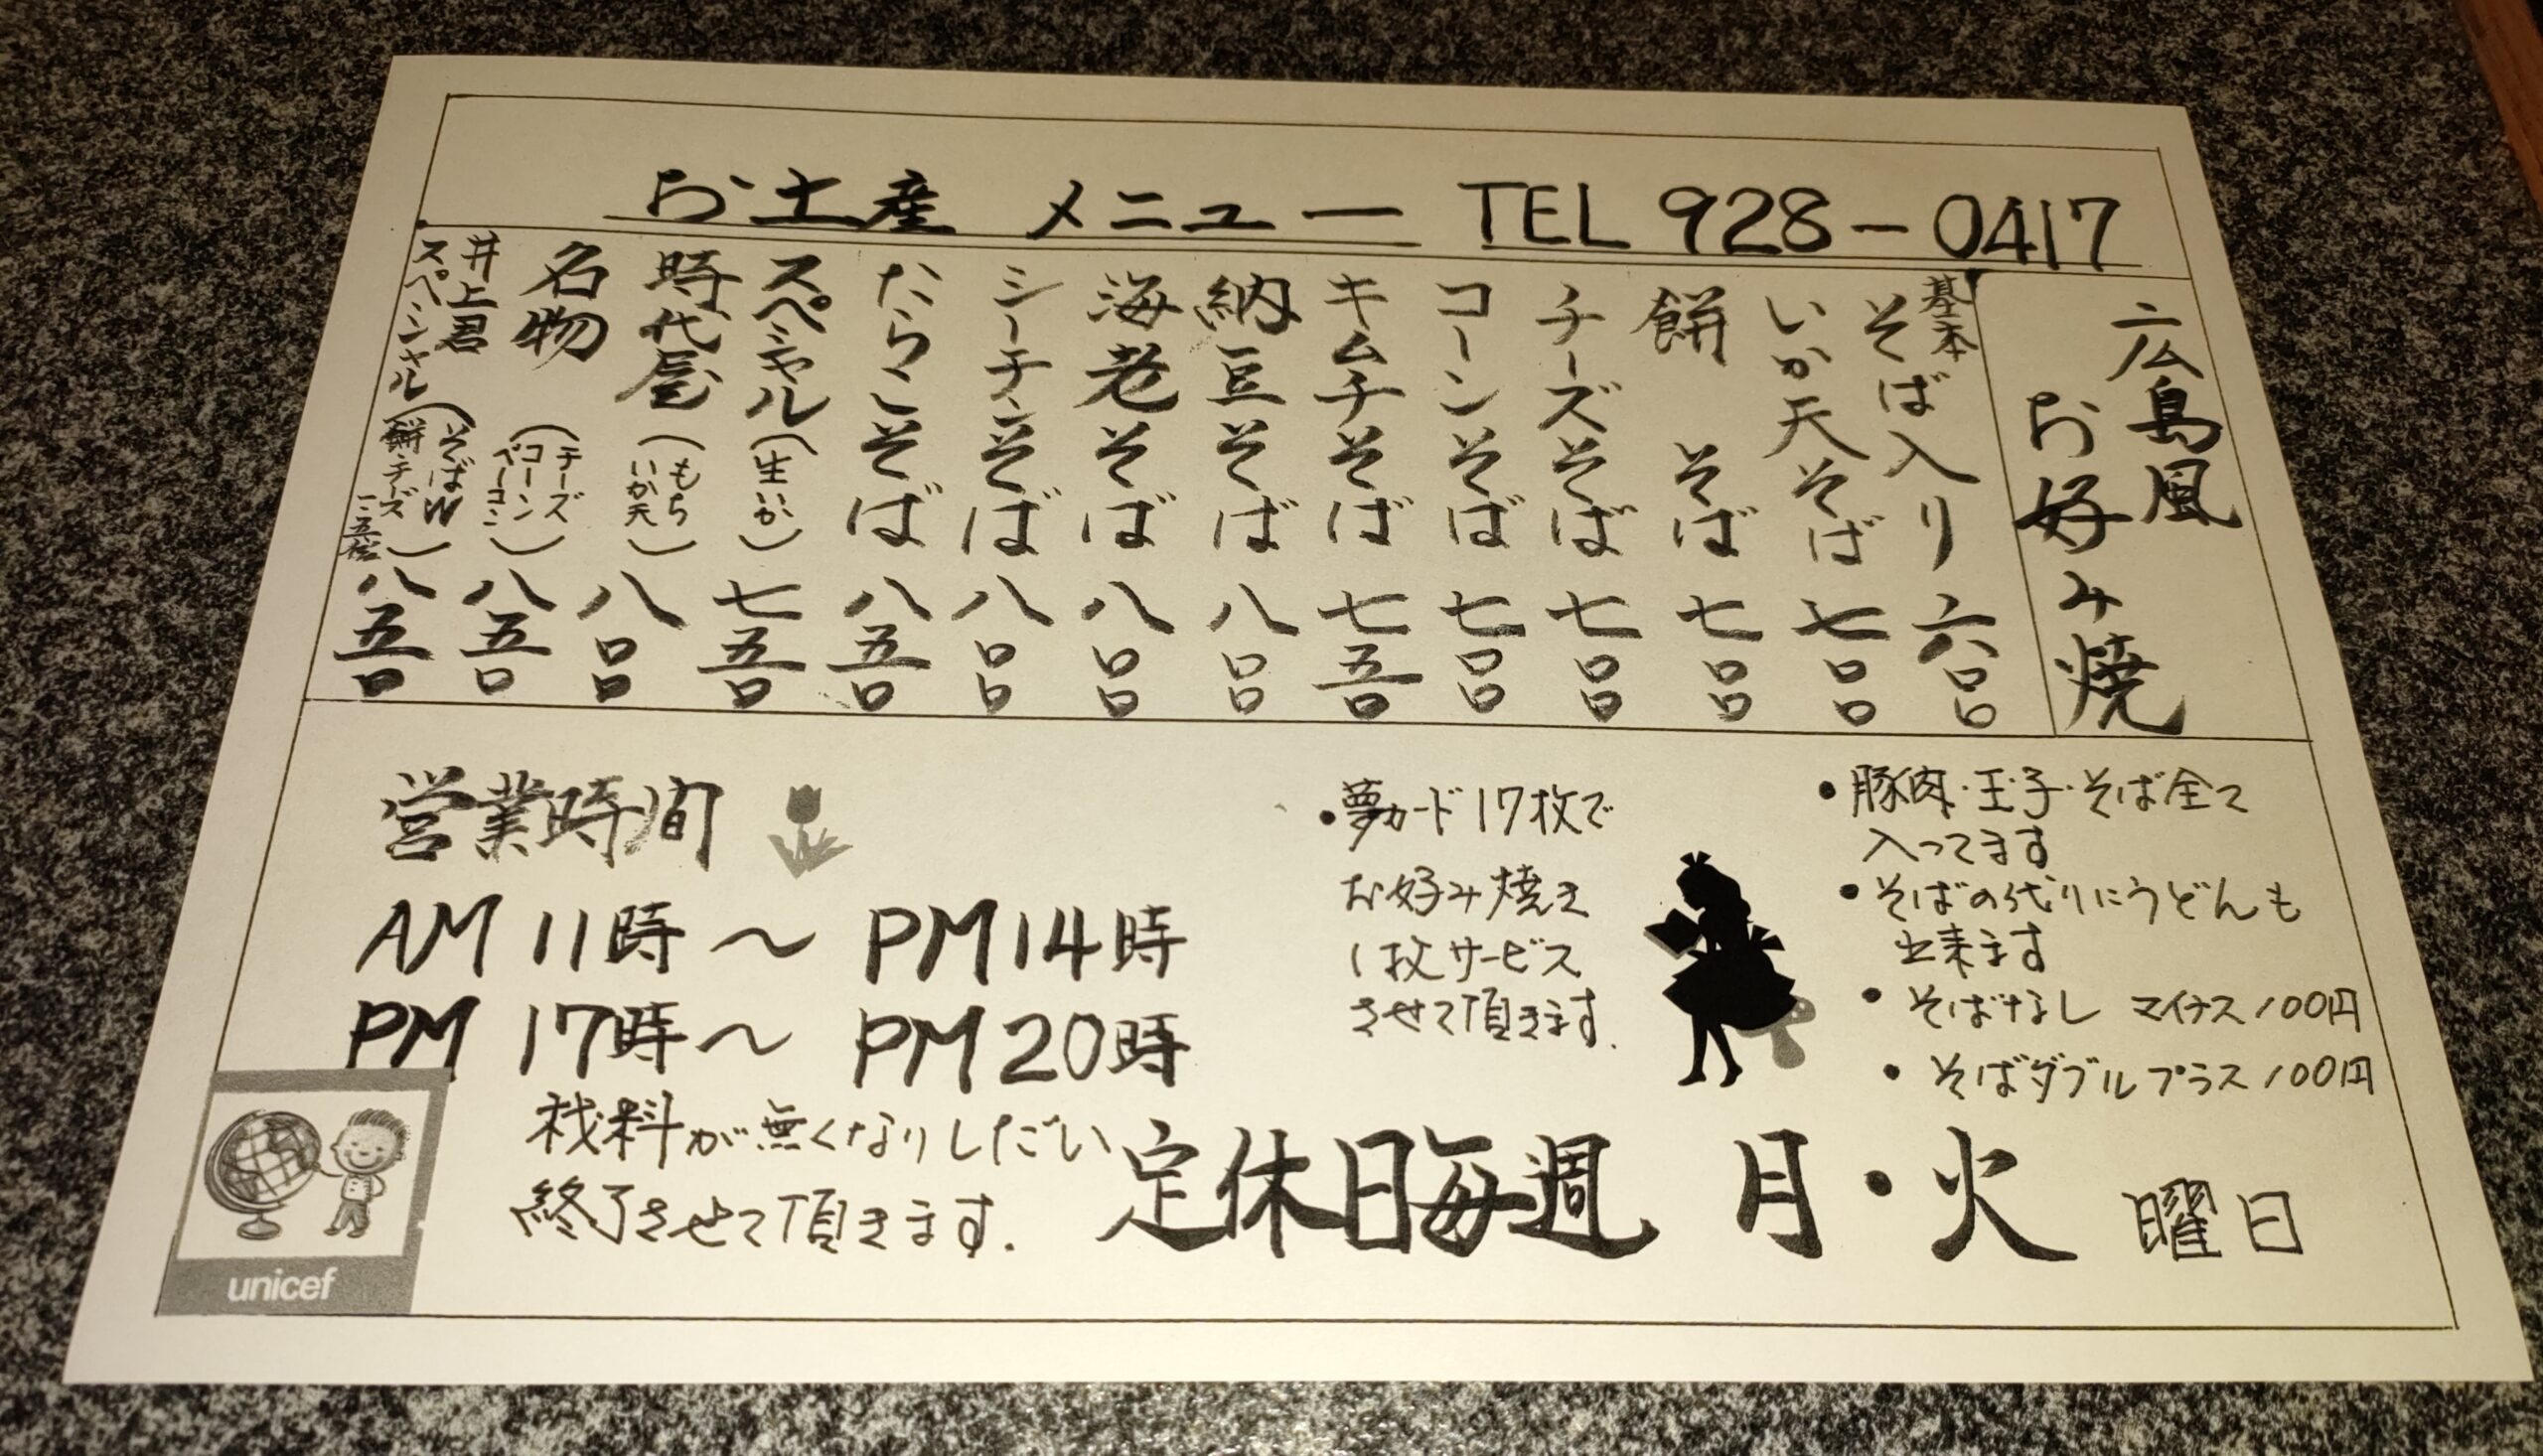 お土産 メニュー TEL 928-0417
広島風
お好み焼
基本
そば入り 六〇〇
いか天そば 七〇〇
餅 そば 七〇〇
チーズそば 七〇〇
コーンそば 七〇〇
キムチそば 七五〇
納豆そば 八〇〇
海老そば 八〇〇
シーチキンそば 八〇〇
たらこそば 八五〇
スペシャル (生いか) 七五〇
時代屋 (もち いか天) 八〇〇
名物 (チーズ コーン ベーコン) 八五〇
井上君
スペシャル (そばW 餅・チーズ) 八五〇
・豚肉・玉子・そば全て
入ってます
・そばの代りにうどんも
出来ます
・そばなし マイナス100円
・そばダブルプラス100円
・夢カード17枚で
お好み焼き
1枚サービス
させて頂きます.
営業時間
AM 11時～PM14時
PM 17時～PM20時
材料が無くなりしだい
終了させて頂きます.
定休日毎週 月・火 曜日
unicef